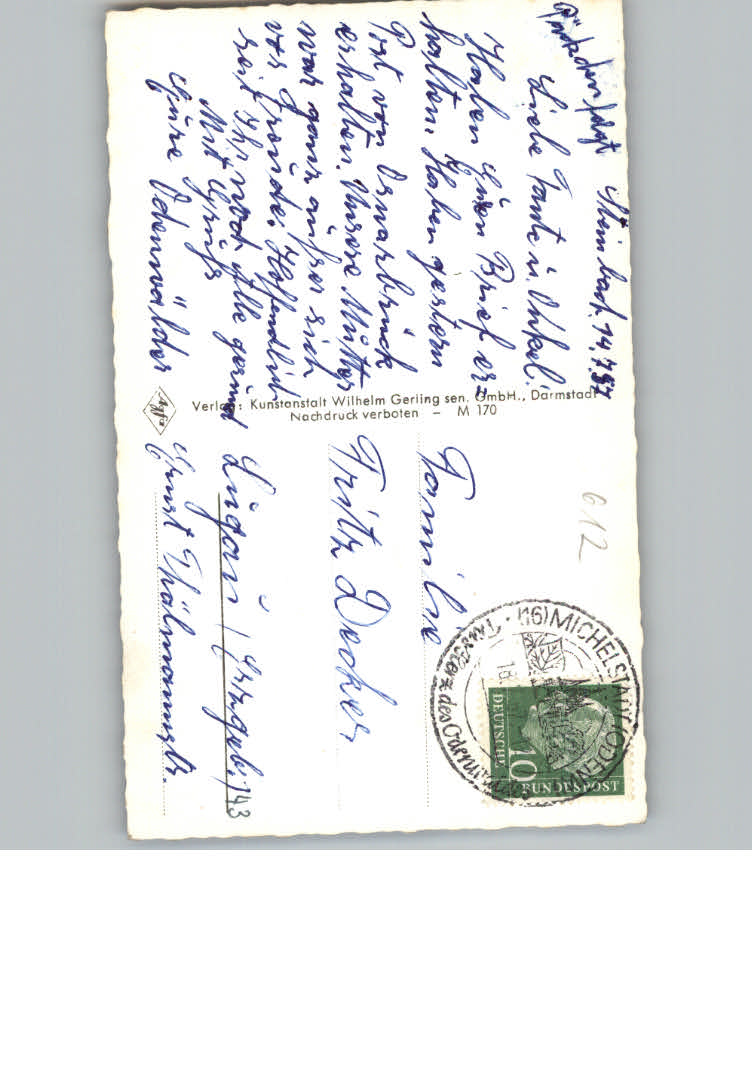 Päckchen folgt
Steinbach, 14.7.57
Liebe Tante u. Onkel!
Haben Euren Brief er=
halten. Haben gestern
Post von Osnarbrück
erhalten. Unsere Mutter
war ganz außer sich
vor Freude. Hoffendlich
seit Ihr noch Alle gesund
Mit Gruß
Eure Odenwälder
Verlag: Kunstanstalt Wilhelm Gerling sen. GmbH., Darmstadt
Nachdruck verboten - M 170
Agfa
612
(16) MICHELSTADT (ODENW)
Herz des Odenwaldes
DEUTSCHE
10
BUNDESPOST
Familie
Fritz Decker
Lugau / Erzgeb. 143
Ernst Thälmannstr.